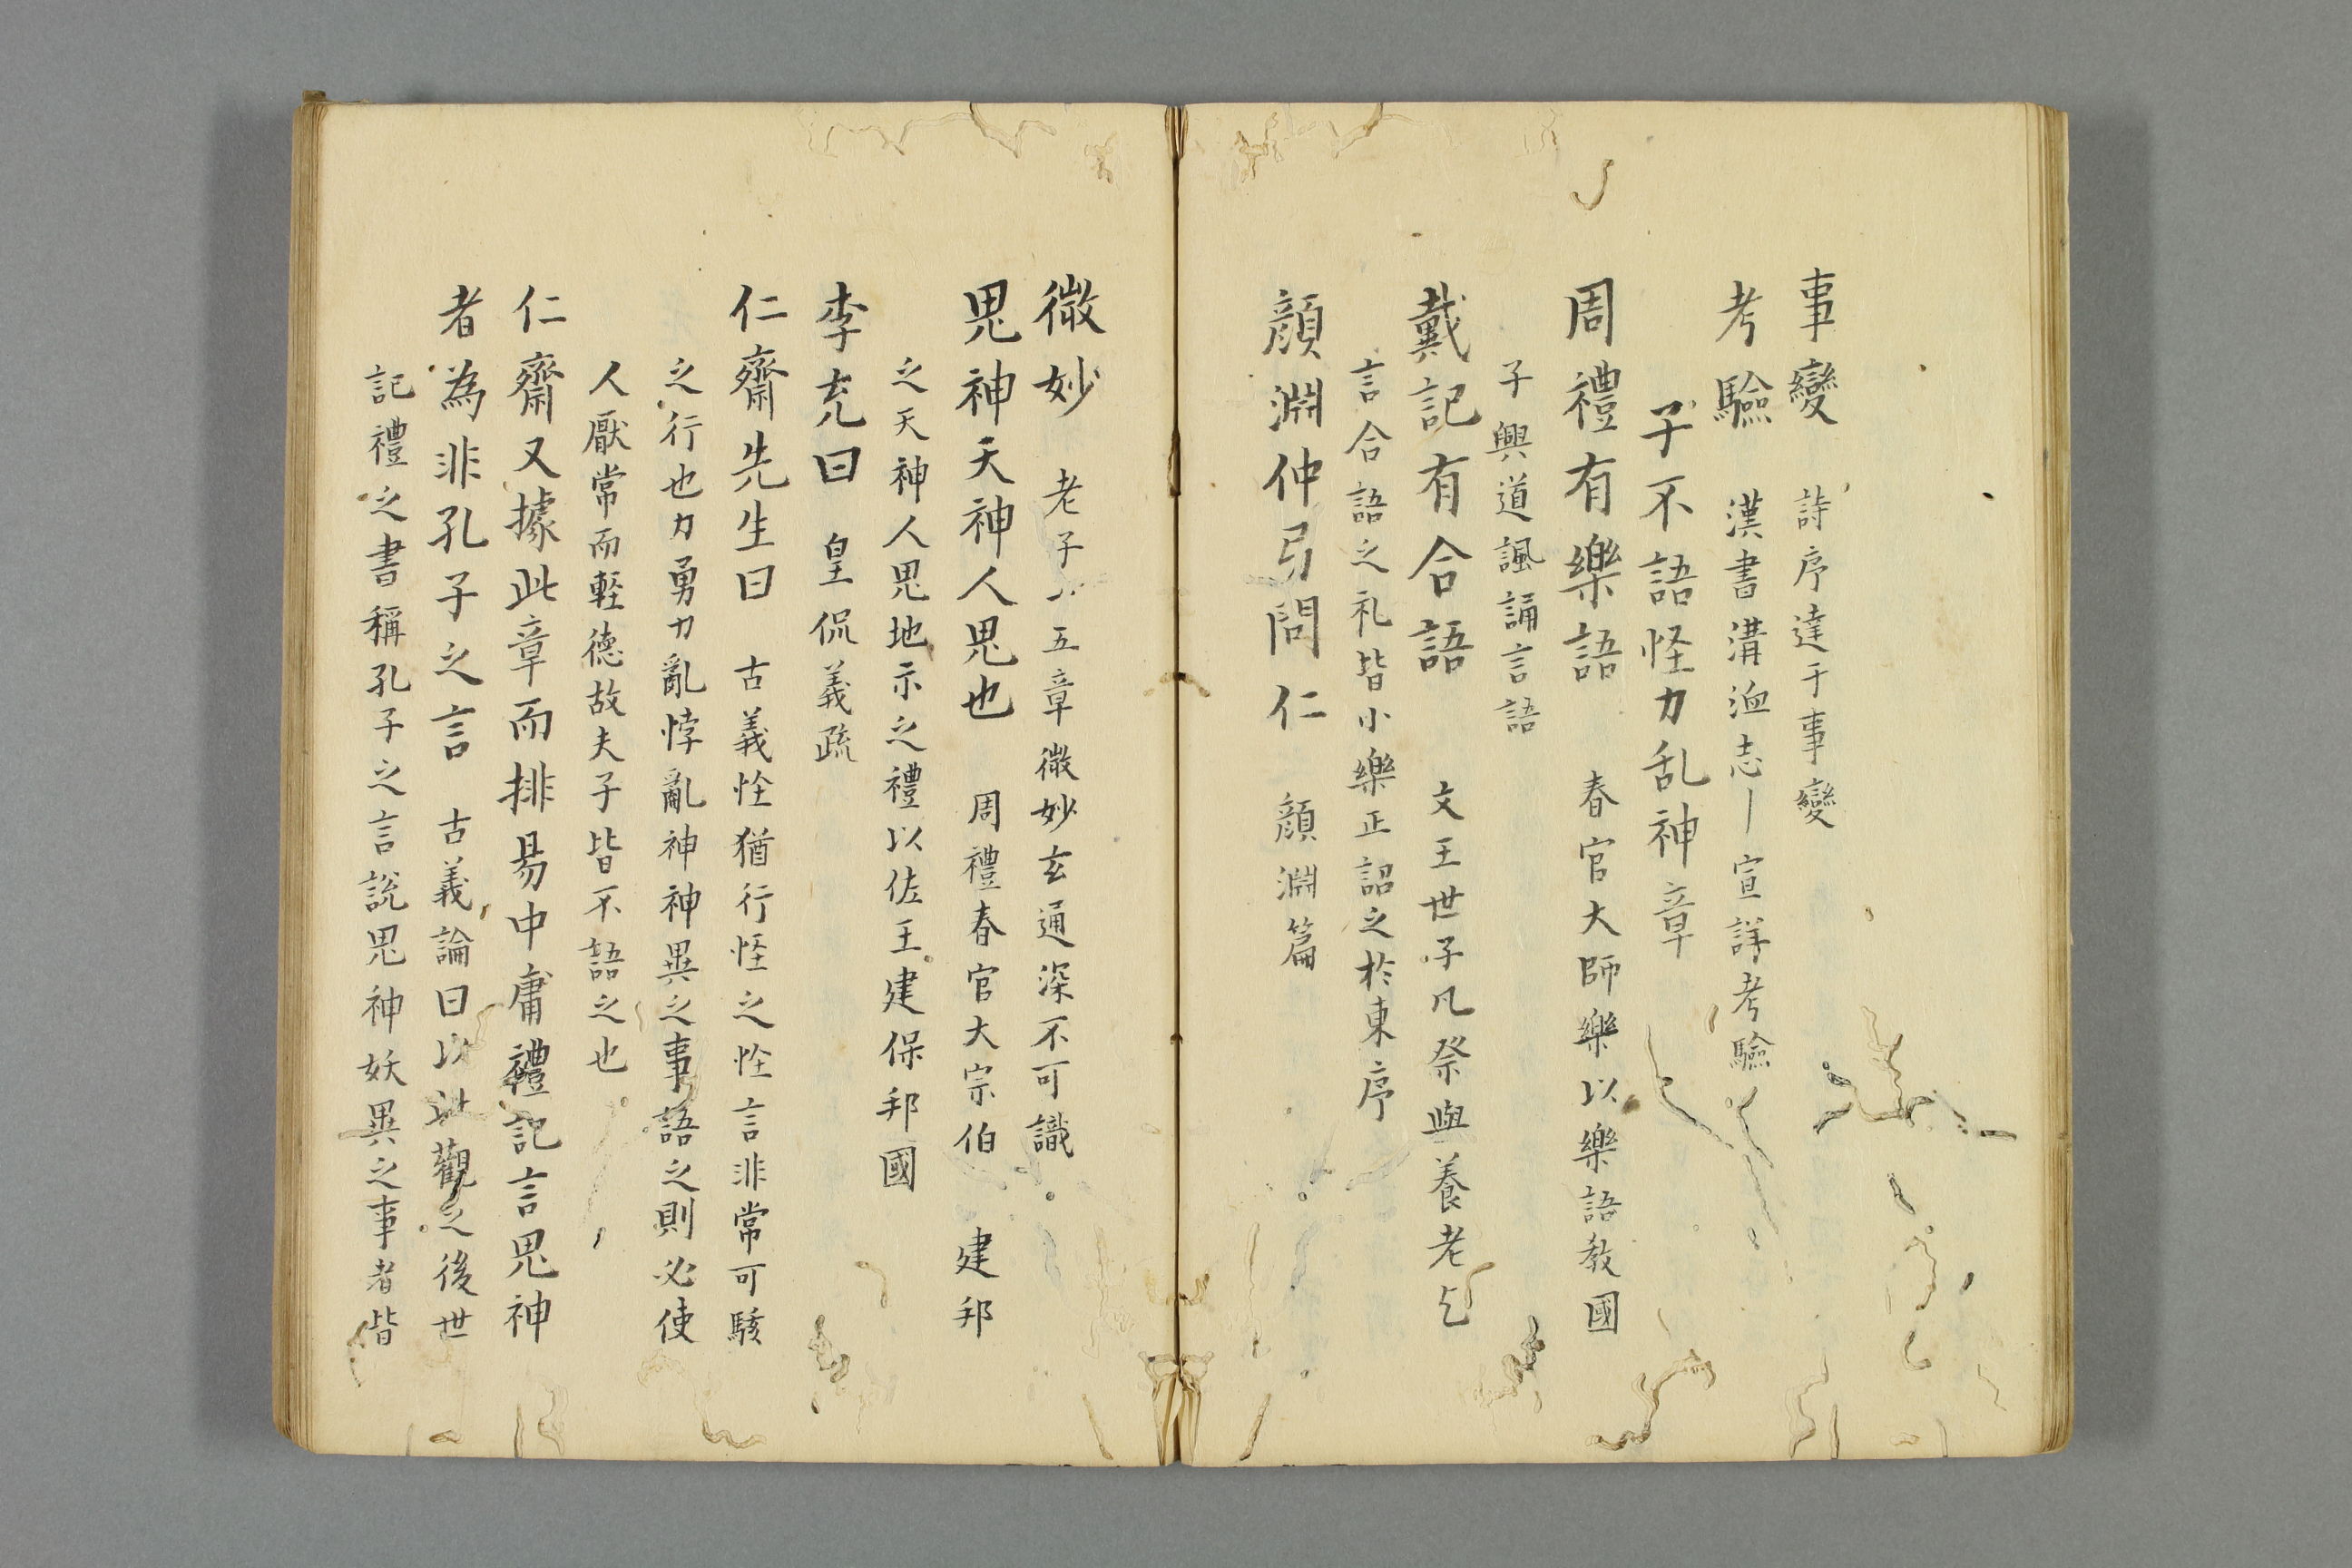 事變　詩序達于事變
考驗　漢書溝洫志｜宣詳考驗
子不語怪力乱神章
周禮有樂語　春官大師樂以樂語教國
子興道諷誦言語
戴記有合語　文王世子凡祭與養老乞
言合語之礼皆小樂正詔之於東序
顔淵仲弓問仁　顔淵篇
微妙　老子　五章微妙玄通深不可識
鬼神天神人鬼也　周禮春官大宗伯　建邦
之天神人鬼地示之禮以佐王建保邦國
李充曰　皇侃義疏
仁齋先生曰　古義恠猶行怪之恠言非常可駭
之行也力勇力亂悖亂神神異之事語之則必使
人厭常而輕德故夫子皆不語之也
仁齋又據此章而排易中庸禮記言鬼神
者為非孔子之言　古義論曰以此觀之後世
記禮之書稱孔子之言說鬼神妖異之事者皆